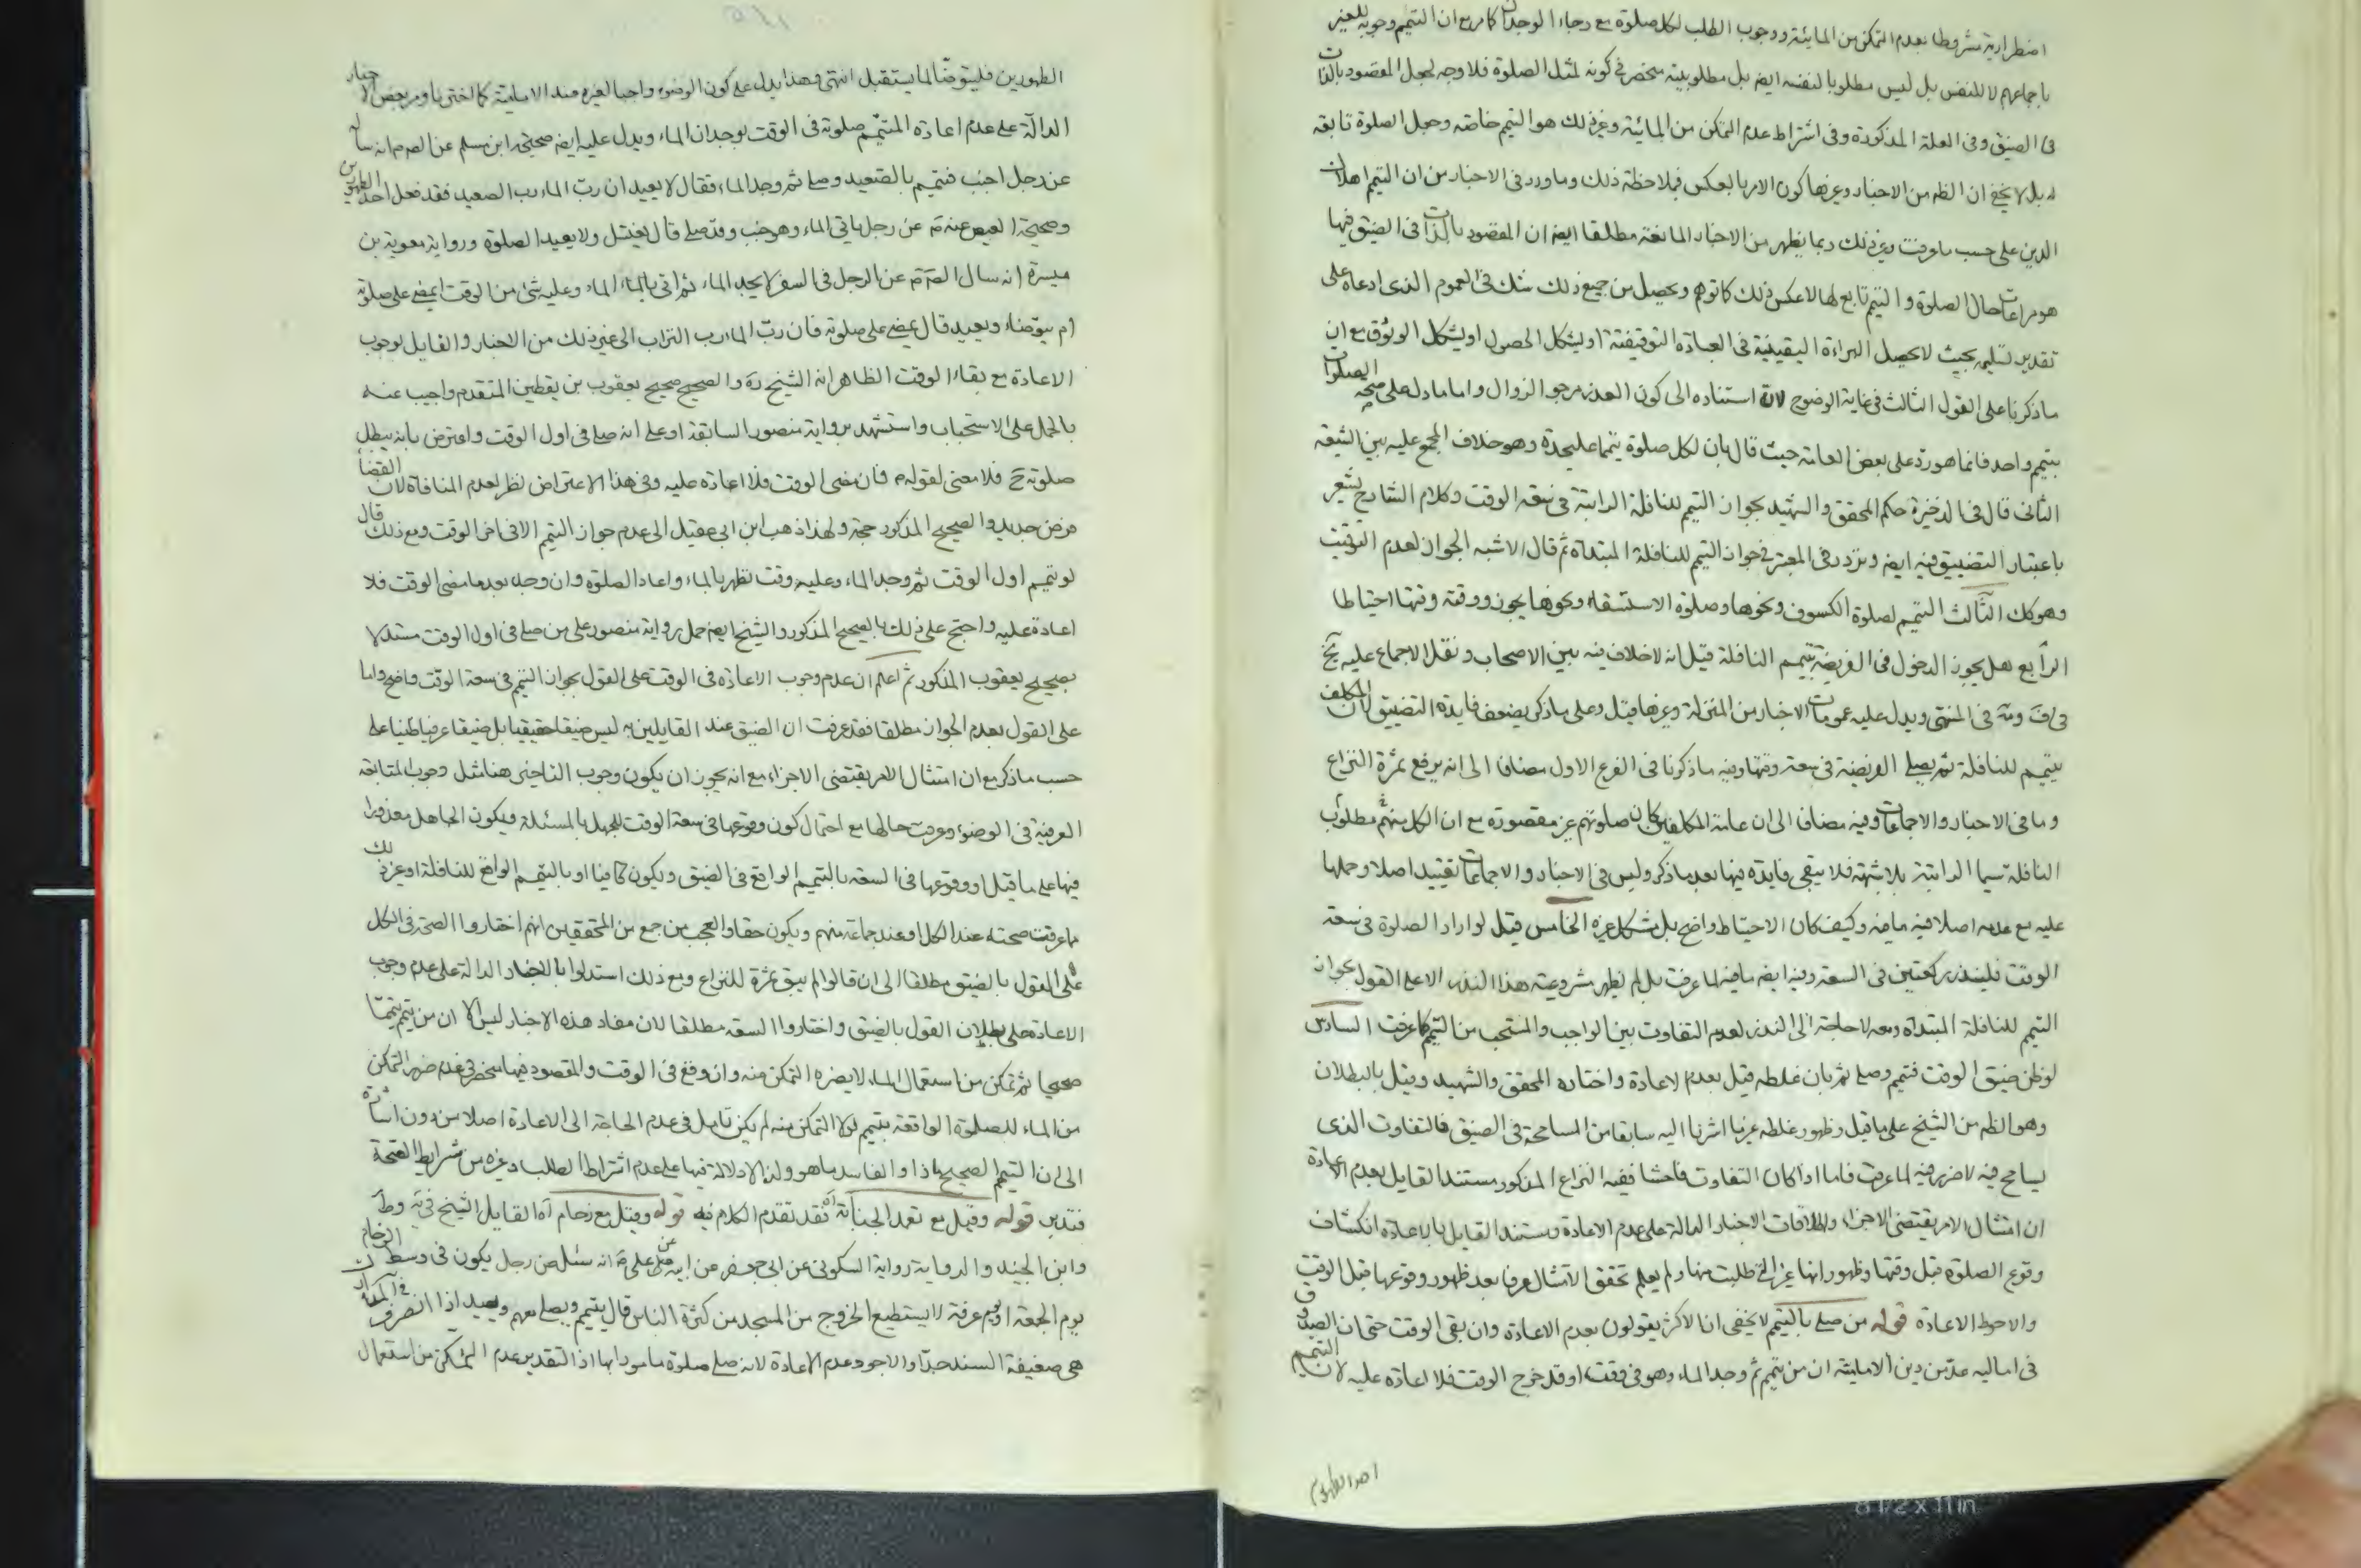 اضطرارية مشروطا بعدم التمكن من المائية ووجوب الطلب لكل صلوة مع رجاء الوجدان كما مر مع ان التيمم وجوبه للغير
باجماعهم لا للنفس بل ليس مطلوبا لنفسه ايض بل مطلوبيته منحصر في كونه لمثل الصلوة فلا وجه لجعل المقصود بالذات
في الضيق وفي العلة المذكورة وفي اشتراط عدم التمكن من المائية وغير ذلك هو التيمم خاصة وجعل الصلوة تابعة
له بل لا يخفى ان الظم من الاخبار وغيرها كون الامر بالعكس فبملاحظة ذلك وما ورد في الاخبار من ان التيمم احد
الدين على حسب ما عرفت وغير ذلك ربما يظهر من الاخبار المانعة مطلقا ايض ان المقصود بالذات في الضيق فيها
هو مراعات حال الصلوة والتيمم تابع لها لا عكس ذلك كما توهم ويحصل من جميع ذلك شك في العموم الذى ادعاه على
تقدير تسليمه بحيث لا يحصل البراءة اليقينية في العبادة التوقيفية او يشكل الحصول او يشكل الوثوق مع ان
ما ذكرنا على القول الثالث في غاية الوضوح لان استناده الى كون العذر مرجو الزوال واما ما دل على صحة الصلوات
بتيمم واحد فانما هو رد على بعض العامة حيث قال بان لكل صلوة تيمما عليحدة وهو خلاف المجمع عليه بين الشيعة
الثانى قال في الذخيرة حكم المحقق والشهيد بجواز التيمم للنافلة الراتبة في سعة الوقت وكلام الشارح يشعر
باعتبار التضييق فيه ايض وتردد في المعتبر في جواز التيمم للنافلة المبتداة ثم قال الاشبه الجواز لعدم التوقيت
وهو كك الثالث التيمم لصلوة الكسوف ونحوها وصلوة الاستسقاء ونحوها يجوز ووقته وقتها احتياطا
الرابع هل يجوز الدخول في الفريضة بتيمم النافلة قيل انه لا خلاف فيه بين الاصحاب ونقل الاجماع عليه
في المنتهى ويدل عليه عمومات الاخبار من المنزلة وغيرها قيل وعلى ما ذكر يضعف فايدة التضييق لان المكلف
يتيمم للنافلة ثم يصلى الفريضة في سعة وقتها وفيه ما ذكرنا في الفرع الاول مضافا الى انه يرفع ثمرة النزاع
وما في الاخبار والاجماعات وفيه مضافا الى ان عامة المكلفين كان صلوتهم غير مقصورة مع ان الكل منهم مطلوب
النافلة سيما الراتبة بلا شبهة فلا يبقى فايدة فيها بعد ما ذكر وليس في الاخبار والاجماعات تقييد اصلا وحملها
عليه مع عدمه اصلا فيه ما فيه وكيف كان الاحتياط واضح بل مشكل غيره الخامس قيل لو اراد الصلوة في سعة
الوقت فلينذر ركعتين في السعة وفيه ايضه ما فيه لما عرفت بل لم يظهر مشروعية هذا النذر الا على القول بجواز
التيمم للنافلة المبتداة ومعه لا حاجة الى النذر لعدم التفاوت بين الواجب والمستحب من التيمم كما عرفت السادس
لو ظن ضيق الوقت فتيمم وصلى ثم بان غلطه قيل بعدم لاعادة واختاره المحقق والشهيد وقيل بالبطلان
وهو الظم من الشيخ على ما قيل وظهور غلطه عرفيا اشرنا اليه سابقا من المسامحة في الضيق فالتفاوت الذى
يسامح فيه لا ضرر فيه لما عرفت فاما اذا كان التفاوت فاحشا ففيه النزاع المذكور مستند القايل بعدم الاعادة
ان امتثال الامر يقتضى الاجزاء واطلاقات الاخبار الدالة على عدم الاعادة ومستند القايل بالاعادة انكشاف
وقوع الصلوة قبل وقتها وظهور انها غير التي طلبت منها ولم يعلم تحقق الامتثال عرفا بعد ظهور وقوعها قبل الوقت
والاحوط الاعادة قوله من صلى بالتيمم لا يخفى ان الاكثر يقولون بعدم الاعادة وان بقى الوقت حتى ان الصدوق
في اماليه عد من دين الامامية ان من تيمم ثم وجد الماء وهو في وقت او قد خرج الوقت فلا اعادة عليه لان التيمم
الطهورين فليتوضأ لما يستقبل انتهى وهذا يدل على كون الوضوء واجبا لغيره عند الامامية كما اخترنا ومر بعض الاخبار
الدالة على عدم اعادة المتيمم صلوته في الوقت بوجدان الماء ويدل عليه ايضه صحيحة ابن مسلم عن الصم انه ساله
عن رجل اجنب فتيمم بالصعيد وصلى ثم وجد الماء فقال لا يعيد ان رب الماء رب الصعيد فقد فعل احد الطهورين
وصحيحة العيص عنه عن رجل ياتى الماء وهو جنب وقد صلى قال يغتسل ولا يعيد الصلوة ورواية معوية بن
ميسرة انه سال الصم عن الرجل في السفر لا يجد الماء ثم اتى بالماء وعليه شئ من الوقت ايمضى على صلوته
ام يتوضاء ويعيد قال يمضى على صلوته فان رب الماء رب التراب الى غير ذلك من الاخبار والقايل بوجوب
الاعادة مع بقاء الوقت الظاهر انه الشيخ ره والصحيح صحيح يعقوب بن يقطين المتقدم واجيب عنه
بالحمل على الاستحباب واستشهد برواية منصور السابقة او على انه صلى في اول الوقت واعترض بانه يبطل
صلوته ح فلا معنى لقوله فان مضى الوقت فلا اعادة عليه وفي هذا الاعتراض نظر لعدم المنافاة لان القضا
فرض جديد والصحيح المذكور حجة ولهذا ذهب ابن ابى عقيل الى عدم جواز التيمم الا في اخر الوقت ومع ذلك قال
لو تيمم اول الوقت ثم وجد الماء وعليه وقت تطهر بالماء واعاد الصلوة وان وجد بعد ما مضى الوقت فلا
اعادة عليه واحتج على ذلك بالصحيح المذكور والشيخ ايضه حمل رواية منصور على من صلى في اول الوقت مستدلا
بصحيح يعقوب المذكور ثم اعلم ان عدم وجوب الاعادة في الوقت على القول بجواز التيمم في سعة الوقت واضح واما
على القول بعدم الجواز مطلقا فقد عرفت ان الضيق عند القايلين به ليس ضيقا حقيقيا بل ضيقا عرفيا ظنيا على
حسب ما ذكر مع ان امتثال الامر يقتضى الاجزاء مع انه يجوز ان يكون وجوب التاخير هنا مثل وجوب المتابعة
العرفية في الوضوء وعرفت حالها مع احتمال كون وقوعها في سعة الوقت للجهل بالمسئلة ويكون الجاهل معذورا
فيها على ما قيل او وقوعها في السعة بالتيمم الواقع في الضيق ويكون كافيا او بالتيمم الواقع للنافلة او غير ذلك
ما عرفت صحته عند الكل او عند جماعة منهم ويكون حقا والعجب من جمع من المحققين انهم اختاروا الصحة في الكل
على القول بالضيق مطلقا الى ان قالوا لم يبق ثمرة للنزاع ومع ذلك استدلوا بالاخبار الدالة على عدم وجوب
الاعادة على بطلان القول بالضيق واختاروا السعة مطلقا لان مفاد هذه الاخبار ليس الا ان من تيمم تيمما
صحيحا ثم تمكن من استعمال الماء لا يضره التمكن منه وان وقع في الوقت والمقصود فيها منحصر في عدم ضرر التمكن
من الماء للصلوة الواقعة بتيمم لولا التمكن منه لم يكن تامل في عدم الحاجة الى الاعادة اصلا من دون اشارة
الى ان التيمم الصحيح ماذا والفاسد ما هو ولذا لا دلالة فيها على عدم اشتراط الطلب وغيره من شرايط الصحة
فتدبر قوله وقيل مع تعمد الجنابة اه فقد تقدم الكلام فيه قوله وقيل مع زحام اه القايل الشيخ في يه وط
وابن الجنيد والرواية رواية السكونى عن ابى جعفر عن ابيه عن على انه سئل عن رجل يكون في وسط الزحام
يوم الجمعة او يوم عرفة لا يستطيع الخروج من المسجد من كثرة الناس قال يتيمم ويصلى معهم ويعيد اذا انصرف
هى ضعيفة السند جدا والاجود عدم الاعادة لانه صلى صلوة مامورا بها اذ التقدير عدم التمكن من استعمال
8 1/2 x 11 in